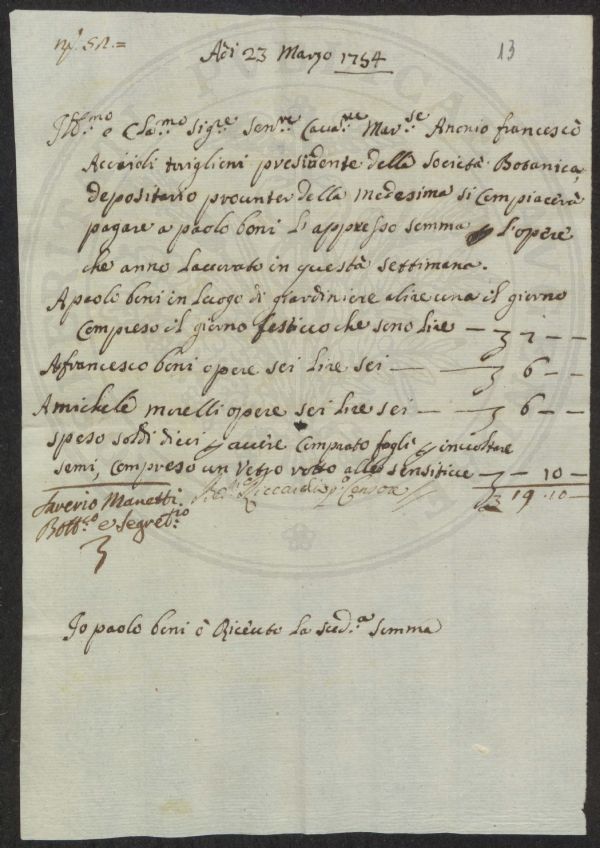 N.º 52.=
Adi 23 Marzo 1754
13
Ill:mo e Cla:mo Sig:re Sen:re Caua:re Mar:se Antonio francescò
Acciaioli presidente della Società Botanica,
depositario della medesima si Compiacerà
pagare a paolo boni l'appresso Somma l'opere
che anno Lauorato in questà Settimana.
A paolo boni in Luogo di giardiniere a lire una il giorno
Compreso il giorno festiuo che sono lire — 7 — —
A francesco boni opere sei lire sei — — 6 — —
A michele morelli opere sei lire sei — — 6 — —
speso soldi dieci auere Comprato fogli inuoltare
semi, Compreso un uetro rotto alle sensitiue — 10 —
Sauerio Manetti Riccardi p.º Censore 19 . 10 —
Bott:co e Segret:rio
Jo paolo boni ò Riceuto La sud.a Somma